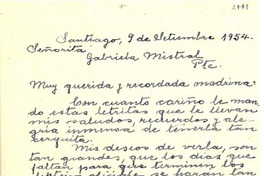 Santiago, 9 de Setiembre 1954.
Señorita
Gabriela Mistral
Pte.
Muy querida y recordada madrina:
Con cuanto cariño le man
do estas letritas que le llevan
mis saludos, recuerdos y ale-
gría inmensa de tenerla tan
cerquita.
Mis deseos de verla, son
tan grandes, que los días que
faltan para que terminen los
se harán tan